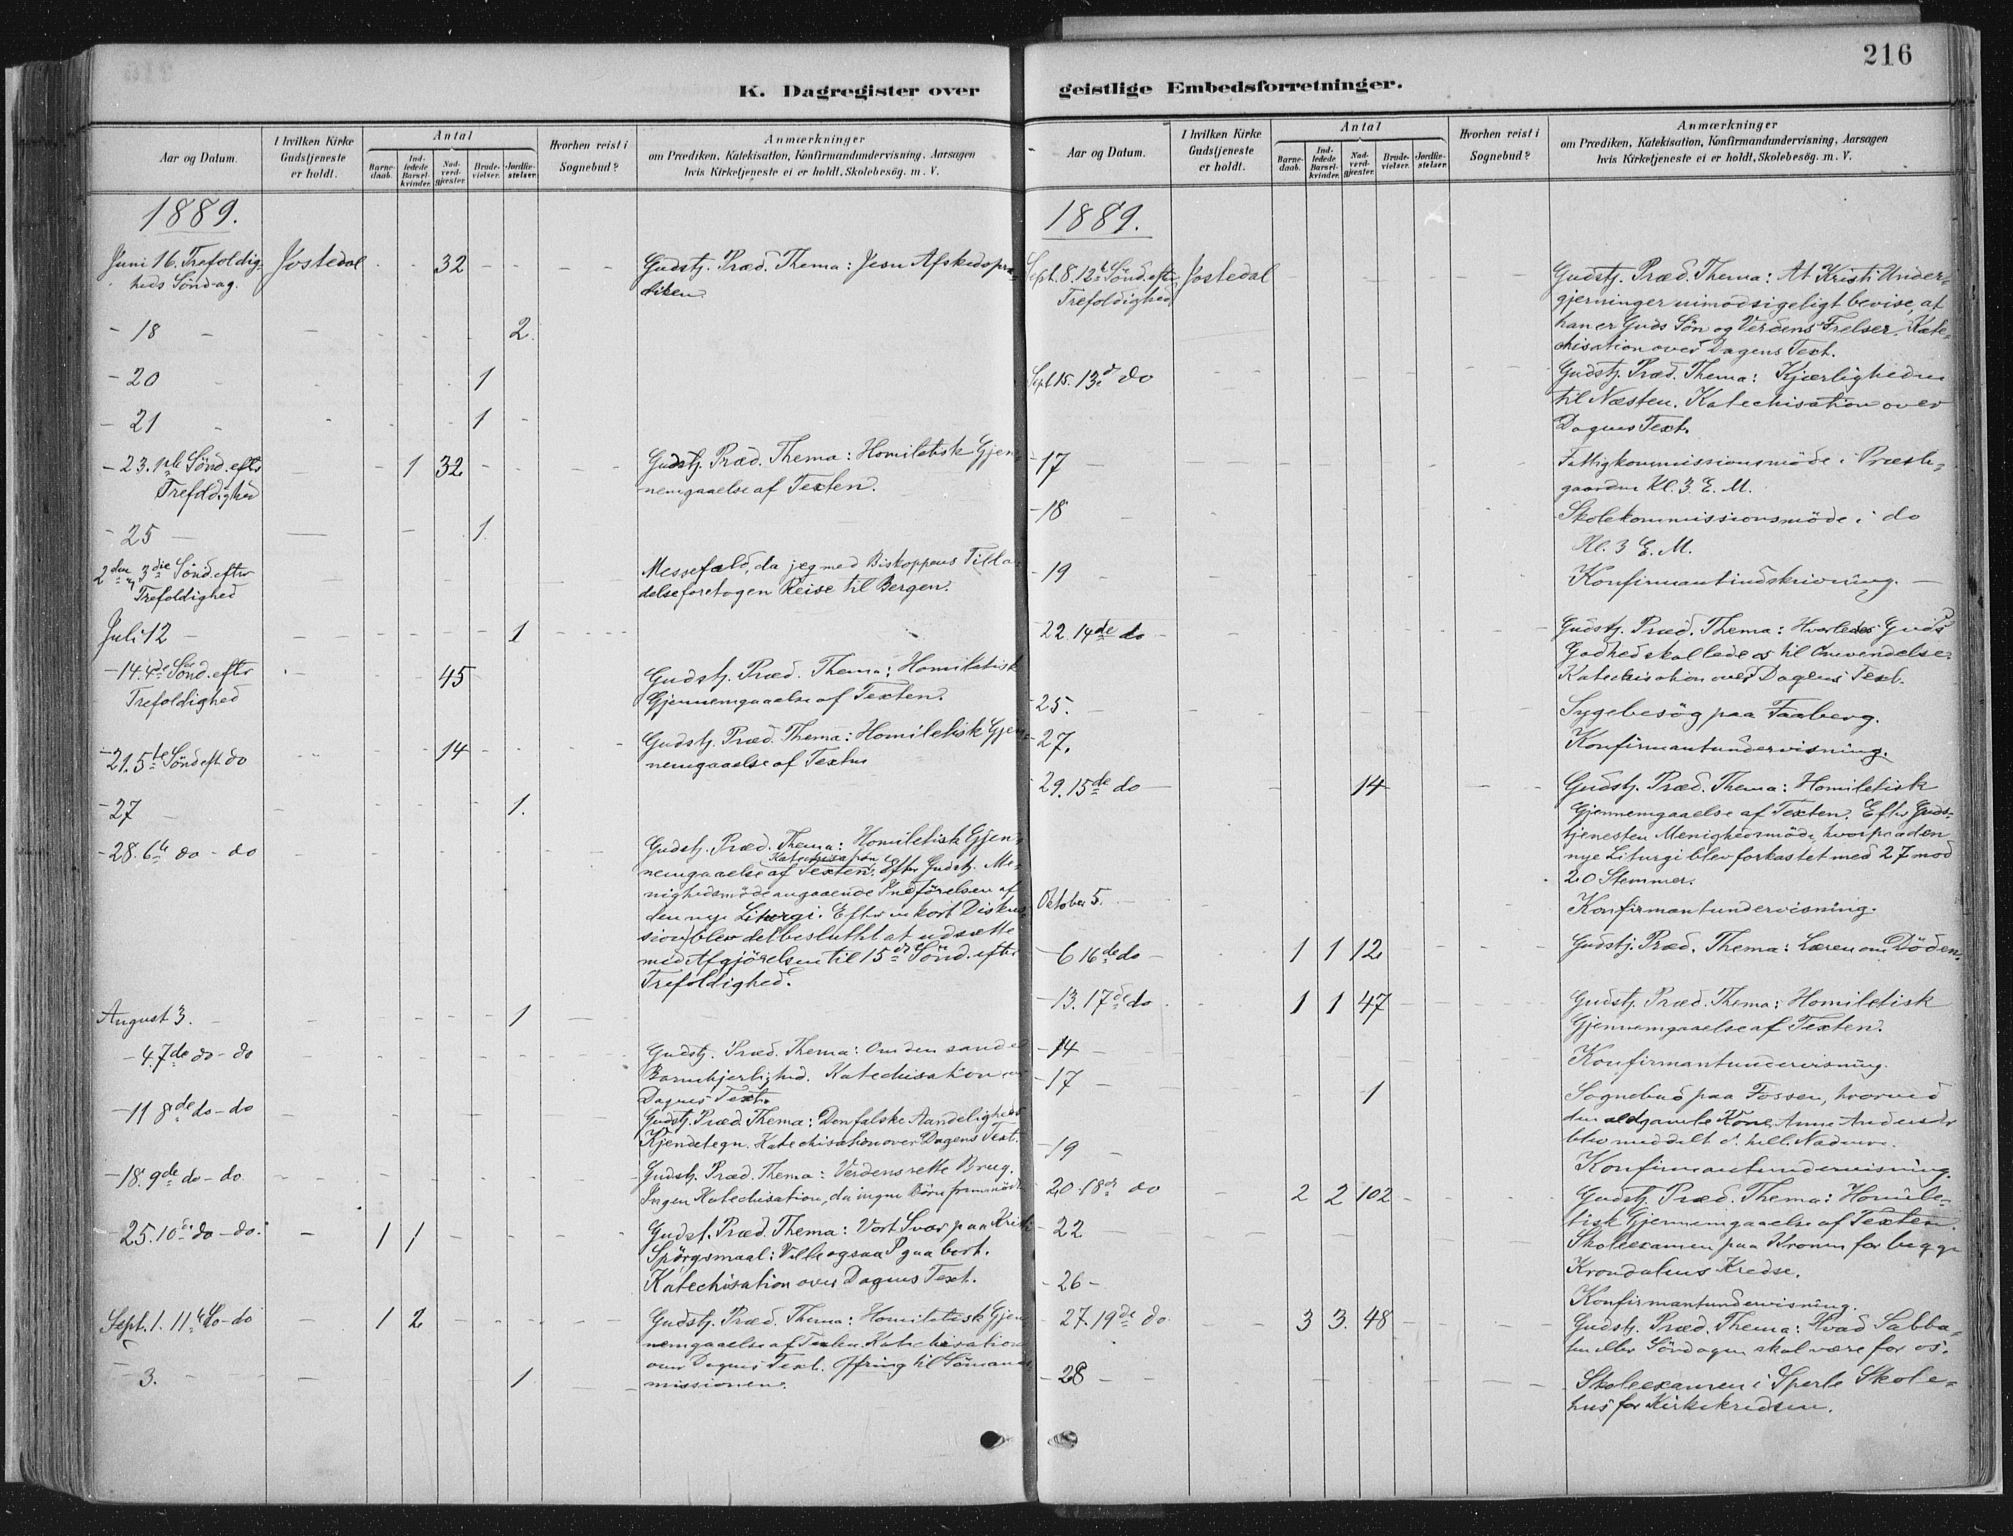 216
K. Dagregister over
geistlige Embedsforretninger.
Aar og Datum.
I hvilken Kirke Gudstjeneste er holdt.
Antal
Barnedaab.
Indledede Barselkvinder.
Nadverdgjæster.
Brudevielser.
Jordfæstelser.
Hvorhen reist i Sognebud?
Anmærkninger
om Prædiken, Katekisation, Konfirmandundervisning, Aarsagen
hvis Kirketjeneste ei er holdt, Skolebesøg. m. V.
1889.
Juni 16. Trefoldig- Jostedal 32 Gudstj. Præd. Thema: Jesu Afskedspræ-
heds Söndag. diken.
- 18 2.
- 20 1
- 21 1
- 23. 1ste Sönd. efter 1 32 Gudstj. Præd. Thema: Homiletisk Gjen-
Trefoldighed nemgaaelse af Texten.
- 25 1.
2den og 3die Sönd. efter Messefald, da jeg med Biskoppens Tilla-
Trefoldighed delse foretog en Reise til Bergen.
Juli 12 1
- 14. 4de Sönd. efter 45 Gudstj. Præd. Thema: Homiletisk
Trefoldighed Gjennemgaaelse af Texten.
- 21. 5te Sönd eft do 14 Gudstj. Præd. Thema: Homiletisk Gjen-
nemgaaelse af Texten
- 27 1.
- 28. 6te do - do Gudstj. Præd. Thema: Homiletisk Gjen-
Katechisation
nemgaaelse af Texten. Efter Gudstj. Me-
nighedsmöde angaaende Indförelsen af
den nye Liturgi. Efter en kort Diskus-
sion blev det besluttet at udsætte
med Afgjörelsen til 15de Sönd. efter
Trefoldighed.
August 3. 1
- 4. 7de do - do Gudstj. Præd. Thema: Om den sande
Barnekjerlighed. Katechisation over
Dagens Text.
- 11 8de do - do Gudstj. Præd. Thema: Den falske Aandeligheds
Kjendetegn. Katechisation over Dagens Text.
- 18. 9de do - do Gudstj. Præd. Thema: Verdens rette Brug.
Ingen Katechisation, da ingen Börn fremmödte
25. 10de do - do. 1 1 Gudst. Præd. Thema: Vort Svar paa Kristi
Spörgsmaal: Ville ogsaa I gaa bort.
Katechisation over Dagens Text.
Sept. 1. 11te do - do 1 2 Gudstj. Præd. Thema: Homiletisk Gjen-
nemgaaelse af Texten. Katechisation
over Dagens Text. Ofring til Sömands-
- 3. 1 missionen.
Aar og Datum.
I hvilken Kirke Gudstjeneste er holdt.
Antal
Barnedaab.
Indledede Barselkvinder.
Nadverdgjæster.
Brudevielser.
Jordfæstelser.
Hvorhen reist i Sognebud?
Anmærkninger
om Prædiken, Katekisation, Konfirmandundervisning, Aarsagen
hvis Kirketjeneste ei er holdt, Skolebesøg. m. V.
1889.
Sept. 8. 12te Sönd. efter Jostedal Gudstj. Præd. Thema: At Kristi Under-
Trefoldighed gjerninger uimodsigeligt bevise, at
han er Guds Sön og Verdens Frelser. Kate-
chisation over Dagens Text.
Sept 15. 13de do Gudstj. Præd. Thema: Kjærligheden
til Næsten. Katechisation over
Dagens Text.
- 17 Fattigkommissionsmöde i Præste-
gaarden Kl. 3 E. M.
- 18 Skolekommissionsmöde i do
Kl. 3 E. M.
- 19 Konfirmantindskrivning.
22. 14de do Gudstj. Præd. Thema: Hvorledes Guds
Godhed skal lede os til Omvendelse.
Katechisation over Dagens Text.
- 25. Sygebesög paa Faaberg.
- 27. Konfirmantundervisning.
29. 15de do 14 Gudstj. Præd. Thema: Homiletisk
Gjennemgaaelse af Texten. Efter Guds-
tjenesten Menighedsmöde, hvorpaa den
nye Liturgi blev forkastet med 27 mod
20 Stemmer.
Oktober 5. Konfirmantundervisning.
- 6 16de do 1 1 12 Gudstj. Præd. Thema: Læren om Döden.
- 13. 17de do 1 1 47 Gudstj. Præd. Thema: Homiletisk
Gjennemgaaelse af Texten.
- 14 Konfirmantundervisning.
- 17 1 Sognebud paa Fossen, hvorved
den ældgamle Kone Anne Andersdr
blev meddelt d. hell. Nadvere.
- 19 Konfirmantundervisning.
20. 18de do 2 2 102 Gudstj. Præd. Thema: Homile-
tisk Gjennemgaaelse af Texten.
- 22 Skoleexamen paa Kronen for begge
Krondalens Kredse.
- 26 - Konfirmantundervisning.
27. 19de do 3 3. 48 Gudstj. Præd. Thema: Hvad Sabba-
ten eller Söndagen skal være for os.
- 28 Skoleexamen i Sperle Skole-
hus for Kirkekredsen.